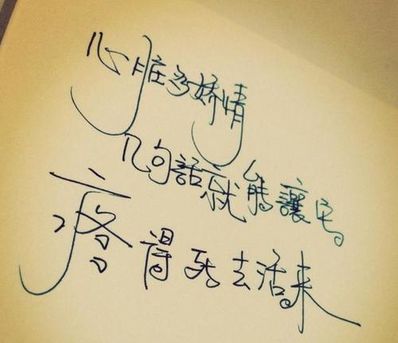 心脏多娇情
几句話就能讓它。
疼得死去活来